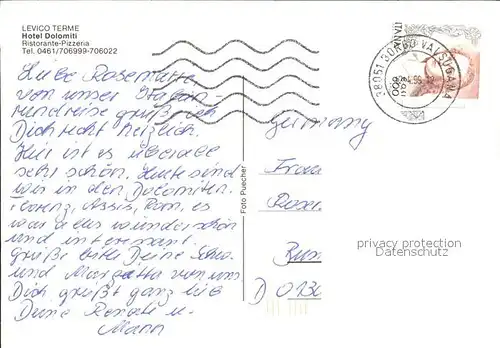 LEVICO TERME
Hotel Dolomiti
Ristorante-Pizzeria
Tel. 0461/706999-706022
Liebe Rosemarie
von unser Italien-
rundreise grüß ich
Dich recht herzlich.
Hier ist es überall
sehr schön. Heute sind
wir in den Dolomiten.
Florenz, Assis, Rom, es
war alles wunderschön
und interessant.
Grüße bitte Deine
und Margetha von uns
Dich grüßt ganz lieb
Deine Renate u.
Mann
Foto Puecher
38051 BORGO VALSUGANA
Germany
Frau
D 013
privacy protection
Datenschutz